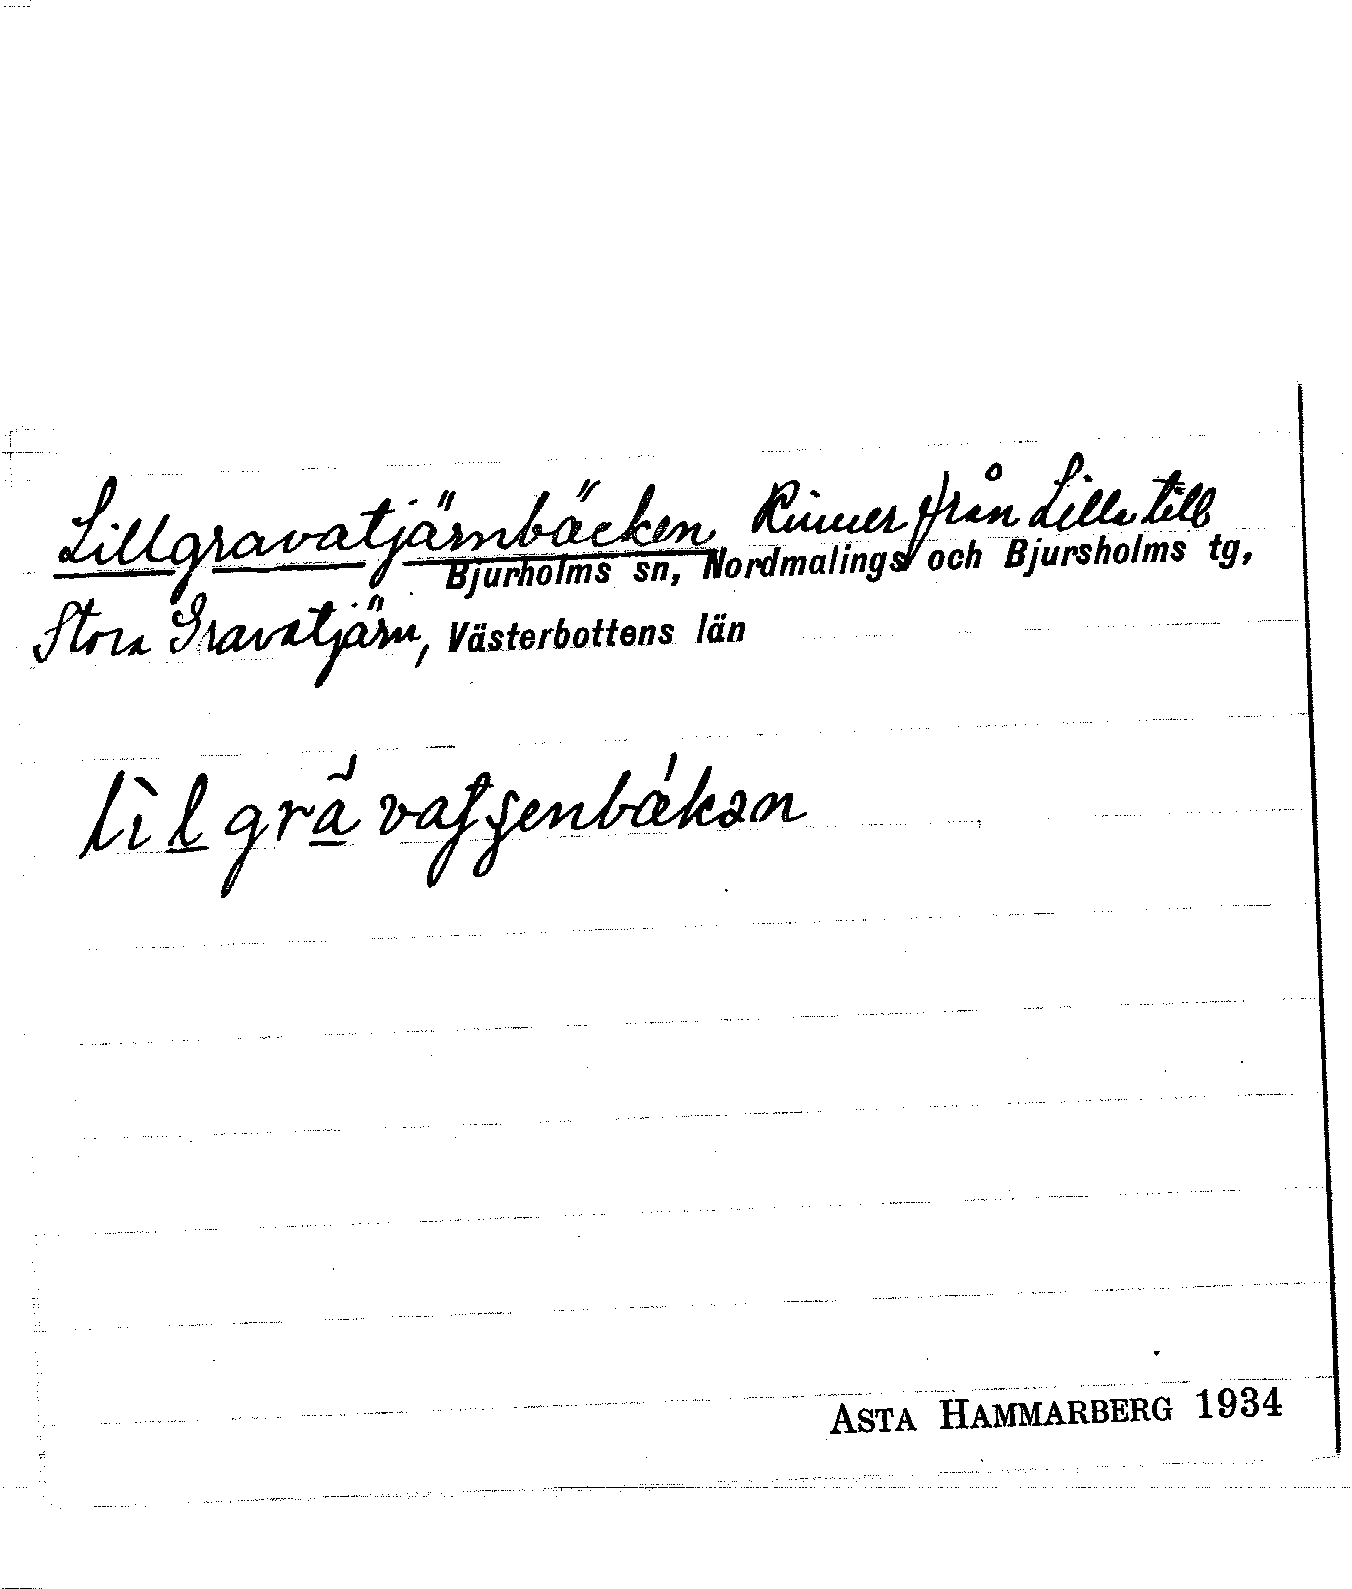 Lillgravatjärnbäcken Rinner från Lilla till
Bjurholms sn, Nordmalings och Bjursholms tg,
Stora Gravatjärn, Västerbottens län
ASTA HAMMARBERG 1934